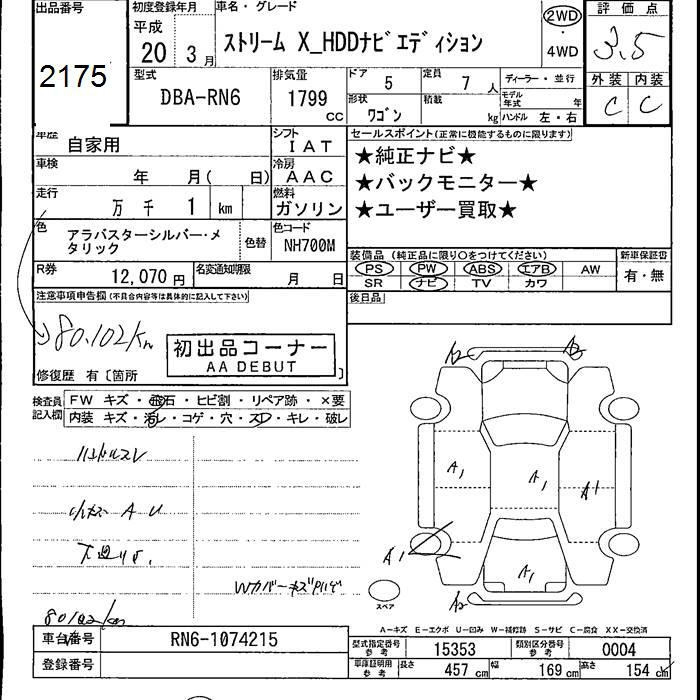 出品番号
2175
初度登録年月
平成
20年 3月
車名・グレード
ストリーム X_HDDナビエディション
2WD
・
4WD
評価点
3.5
外装 内装
C C
型式
DBA-RN6
排気量
1799 CC
ドア 5
定員 7人
形状 ワゴン
積載 kg
ディーラー・並行
モデル年式 年
ハンドル 左・右
車歴 自家用
シフト IAT
車検 年 月( 日)
冷房 AAC
走行 万 千 1 km
燃料 ガソリン
色 アラバスターシルバー・メタリック
色替
色コード NH700M
R券 12,070円
名変通知期限 月 日
セールスポイント(正常に機能するものに限ります)
★純正ナビ★
★バックモニター★
★ユーザー買取★
装備品 (純正品に限り○をつけてください)
PS PW ABS エアB AW
SR ナビ TV カワ
新車保証書
有・無
後日品
注意事項申告欄(不具合内容等は具体的に記入して下さい)
80,102km
初出品コーナー
AA DEBUT
修復歴 有〔箇所 〕
検査員記入欄
FW キズ・飛石・ヒビ割・リペア跡・×要
内装 キズ・汚レ・コゲ・穴・スレ・キレ・破レ
ハンドルスレ
小キズ A U
下廻りサ.
Wカバーキズ
80102km
A2 A2
A1 A1 A1
A1
A1
A2
スペア
A-キズ E-エクボ U-凹み W-補修跡 S-サビ C-腐食 XX-交換済
車台番号 RN6-1074215
登録番号
型式指定番号 参考 15353
類別区分番号 参考 0004
車庫証明用 参考 長さ 457cm 幅 169cm 高さ 154cm